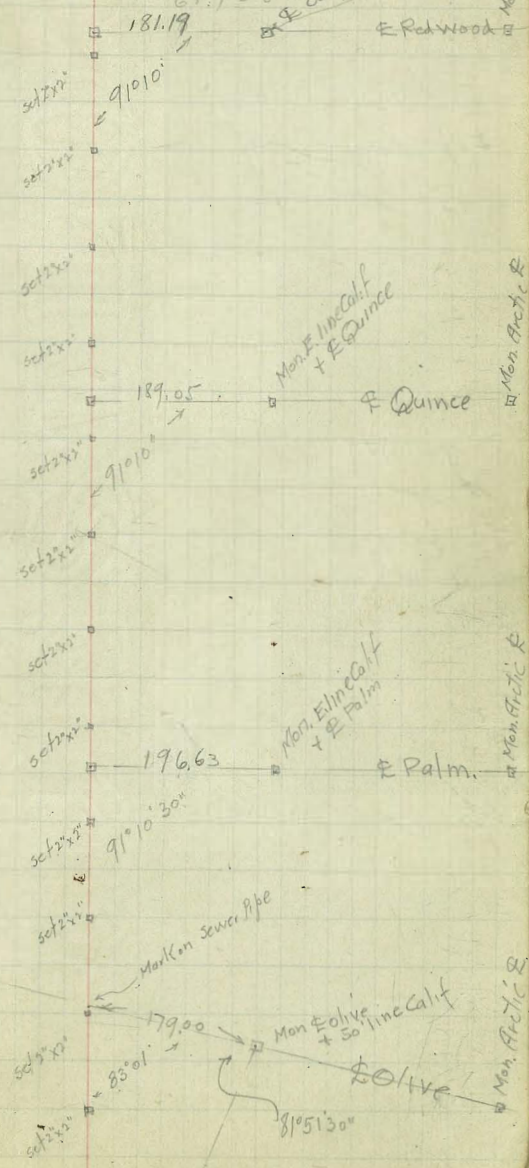 181.19
℄ Redwood
set 2"x2"
91°10'
set 2"x2"
set 2"x2"
Mon. E. line Calif
+ ℄ Quince
Mon. Arctic ℄
set 2"x2"
189.05
℄ Quince
set 2"x2"
91°10'
set 2"x2"
set 2"x2"
Mon. E line Calif
+ ℄ Palm
Mon. Arctic ℄
set 2"x2"
196.63
℄ Palm.
set 2"x2"
91°10'30"
set 2"x2"
Mark on Sewer Pipe
179.00
Mon ℄ Olive
+ 50' line Calif
Mon. Arctic ℄
set 2"x2"
83°01'
℄ Olive
81°51'30"
set 2"x2"